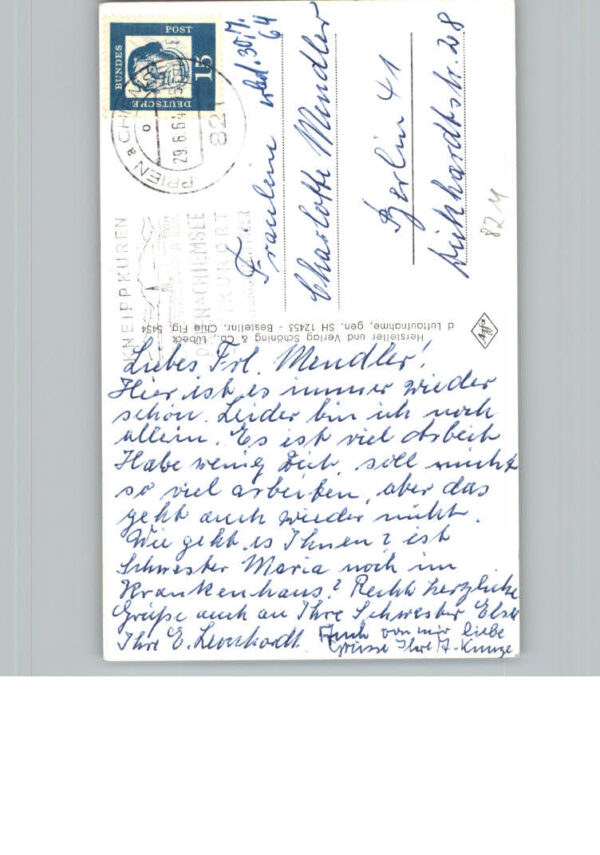 DEUTSCHE
BUNDES
POST
15
PRIEN a CHIEMSEE
29.6.64
821
KNEIPPKUREN
PRIEN A CHIEMSEE
KURORT
Fräulein
erled. 30.7.
64
Charlotte Mendler
Berlin 41
Dickhardtstr. 28
82 M
Hersteller und Verlag Schöning & Co., Lübeck
d Luftaufnahme, gen. SH 12453 - Bestellnr. Chie Flg. 5454
Agfa
Liebes Frl. Mendler!
Hier ist es immer wieder
schön. Leider bin ich noch
allein. Es ist viel Arbeit
Habe wenig Zeit, soll nicht
so viel arbeiten, aber das
geht auch wieder nicht.
Wie geht es Ihnen? ist
Schwester Maria noch im
Krankenhaus? Recht herzliche
Grüße auch an Ihre Schwester Else
Ihre E. Leonhardt. Auch von mir liebe
Grüsse Ihre A. Kunze